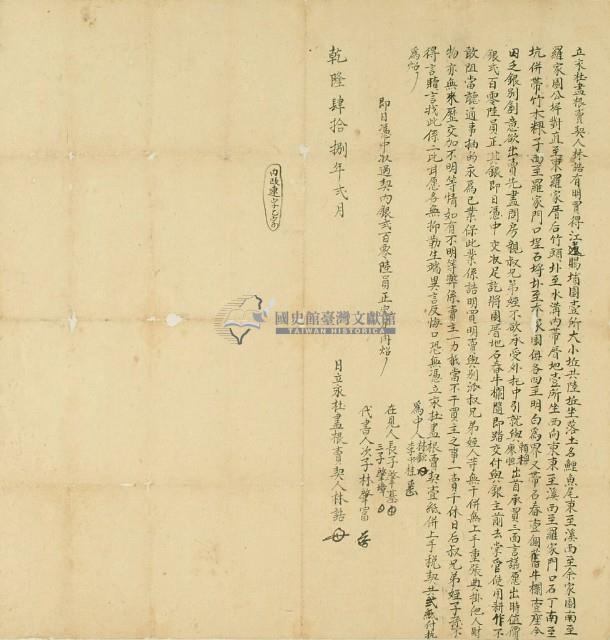 立永杜盡根賣契人林諾有明買得江遠賜埔園壹所大小坵共陸坵坐落土名鯉魚尾東至溪西至余家園南至
羅家園公埓對直至東羅家厝后竹頭北至水溝內帶厝地壹所坐西向東東至溪西至羅家門口石丁南至
坑併帶竹木粿子南至羅家門口埕石埓北至家園俱各四至明白為界又帶石舂壹個舊牛欄壹座今
因乏銀別創意欲出賣先盡問房親叔兄弟姪不欲承受外托中引就與賴穆廖恒出首承買三面言議愿出時值價
銀弍百零陸員正其銀即日憑中交收足訖將園厝地石舂牛欄隨即踏交付與銀主前去掌管使用耕作不
敢阻當聽通事抽的永為己業保此業係諾明買明賣與別派叔兄弟姪人等無干併無上手重張典掛他人財
物亦無來歷交加不明等情如有不明等弊係賣主一力抵當不干買主之事一賣千休日后叔兄弟姪子孫不
得言贖言找此係二比甘愿各無抑勒生端異言反悔口恐無憑立永杜盡根賣契壹紙併上手稅契共弍紙付執
為炤
即日憑中收過契內銀弍百零陸員正完炤
為中人林
李桂
在見人長子肇基
二子肇
代書人次子林肇富
乾隆肆拾捌年弍月 日立永杜盡根賣契人林諾
內改
國史館臺灣文獻館
TAIWAN HISTORICA